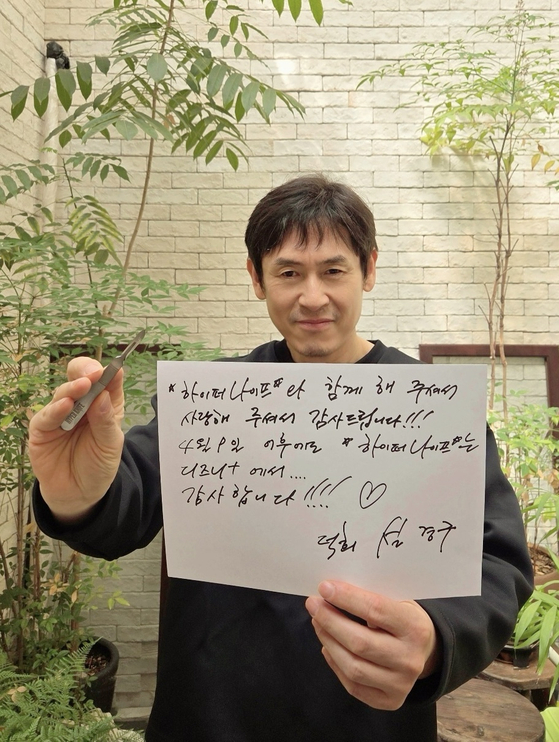 *하이퍼나이프*와 함께 해 주셔서
사랑해 주셔서 감사드립니다!!!
4월 9일 이후에도 *하이퍼나이프*는
디즈니+ 에서....
감사합니다!!!! ♡
덕희 설경구